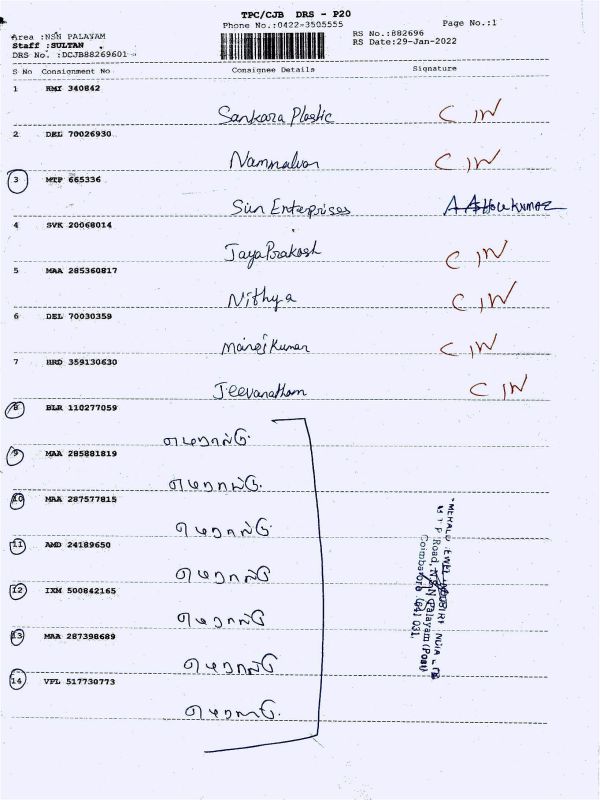 TPC/CJB DRS - P20
Phone No.:0422-3505555
Page No.:1
Area :NSN PALAYAM
Staff :SULTAN
DRS No. :DCJB88269601
RS No.:882696
RS Date:29-Jan-2022
S No Consignment No Consignee Details Signature
1 RMI 340842
Sankara Plastic C IW
2 DEL 70026930
Nammalvar C IW
3 MTP 665336
Sun Enterprises
4 SVK 20068014
JayaPrakash C IW
5 MAA 285360817
Nithya C IW
6 DEL 70030359
Manoj Kumar C IW
7 HRD 359130630
Jeevanatham C IW
8 BLR 110277059
எமரால்டு
9 MAA 285881819
எமரால்டு
10 MAA 287577815
எமரால்டு
11 AMD 24189650
எமரால்டு
12 IXM 500842165
எமரால்டு
13 MAA 287398689
எமரால்டு
14 VPL 517730773
எமரால்டு
M T P Road, NSN Palayam (Post)
Coimbatore 641 031.